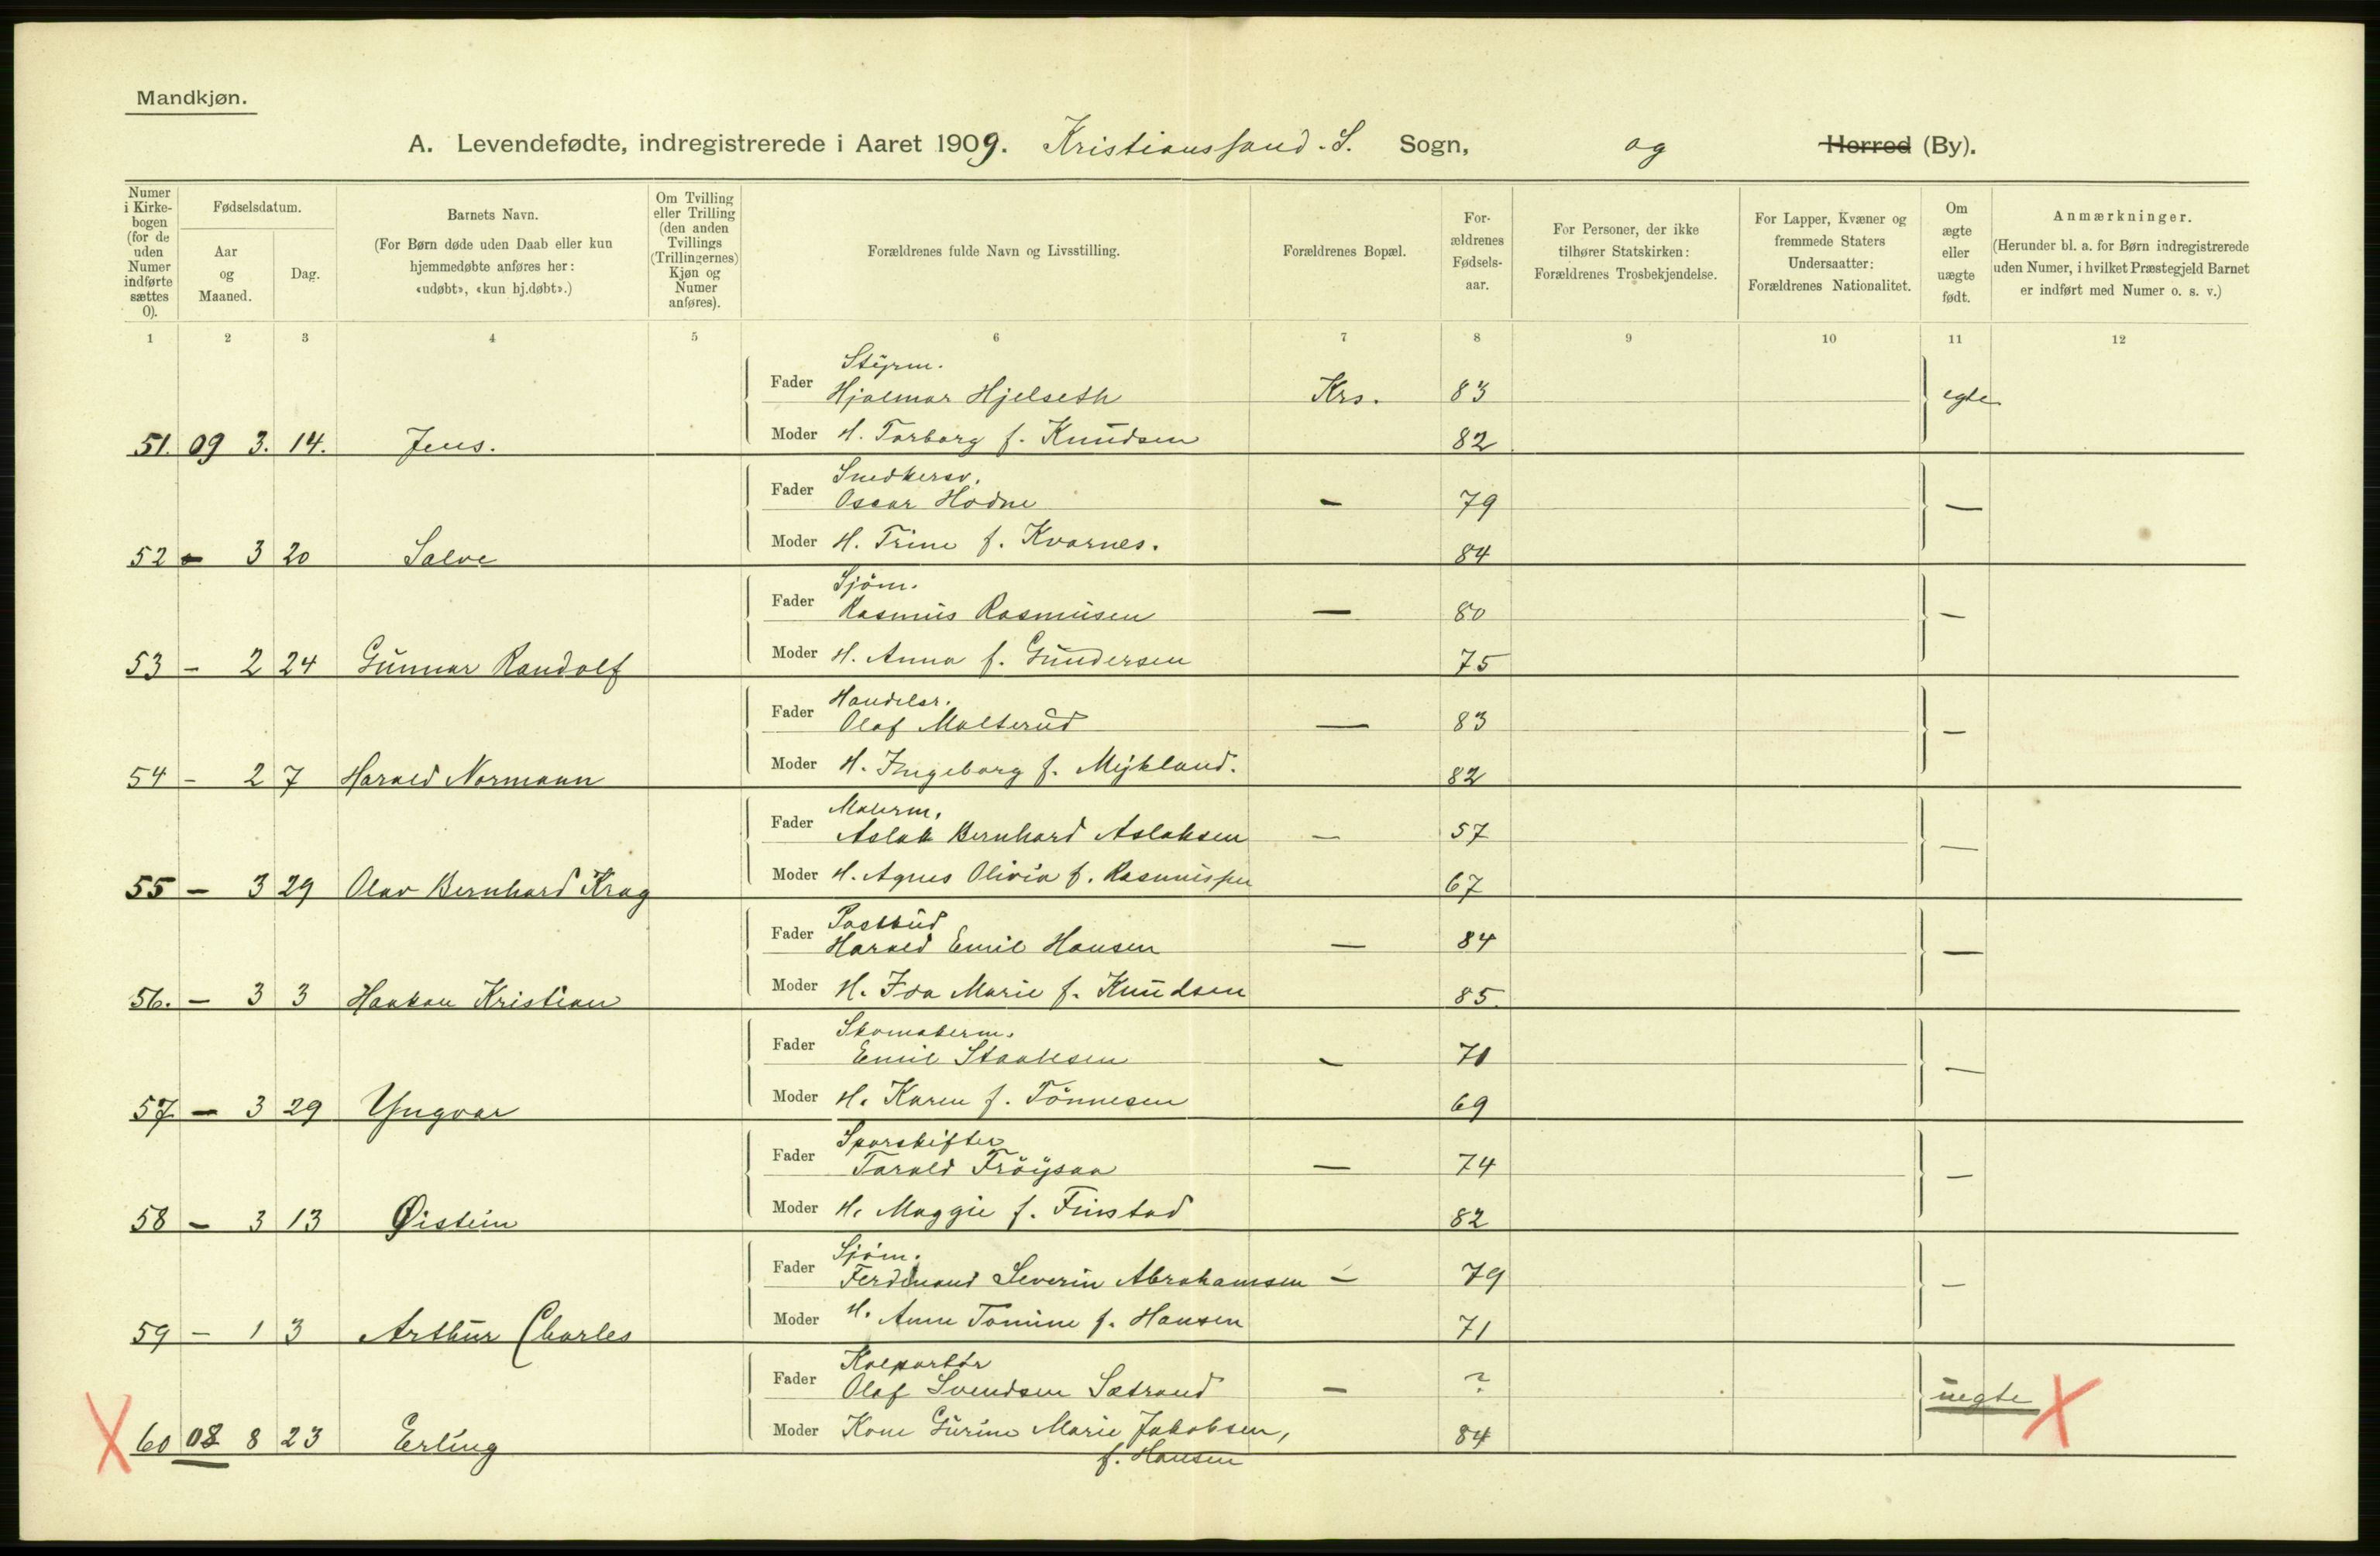 Mandkjøn.
A. Levendefødte, indregistrerede i Aaret 1909. Kristianssand. S. Sogn, og Herred (By).
Numer i Kirkebogen (for de uden Numer indførte sættes 0).
Fødselsdatum.
Aar og Maaned.
Dag.
Barnets Navn.
(For Børn døde uden Daab eller kun hjemmedøbte anføres her: «udøbt», «kun hj.døbt».)
Om Tvilling eller Trilling (den anden Tvillings (Trillingernes) Kjøn og Numer anføres).
Forældrenes fulde Navn og Livsstilling.
Forældrenes Bopæl.
Forældrenes Fødselsaar.
For Personer, der ikke tilhører Statskirken: Forældrenes Trosbekjendelse.
For Lapper, Kvæner og fremmede Staters Undersaatter: Forældrenes Nationalitet.
Om ægte eller uægte født.
Anmærkninger.
(Herunder bl. a. for Børn indregistrerede uden Numer, i hvilket Præstegjeld Barnet er indført med Numer o. s. v.)
1 2 3 4 5 6 7 8 9 10 11 12
Styrm.
Fader Hjalmar Hjelseth Krs. 83 egte
51. 09 3. 14. Jens. Moder H. Torborg f. Knudsen 82
Snedkersv.
Fader Oscar Hodne — 79 —
52 - 3 20 Salve Moder H. Trine f. Kvarnes. 84
Sjöm.
Fader Rasmus Rasmusen — 80 —
53 - 2 24 Gunnar Randolf Moder H. Anna f. Gundersen 75
Handelsr.
Fader Olaf Molterud — 83 —
54 - 2 7 Harald Normann Moder H. Ingeborg f. Mykland. 82
Malerm.
Fader Aslak Bernhard Aslaksen — 57 —
55 - 3 29 Olav Bernhard Krag Moder H. Agnes Olivia f. Rasmussen 67
Postbud
Fader Harald Emil Hansen — 84 —
56. - 3 3 Haakon Kristian Moder H. Ida Marie f. Knudsen 85.
Skomakerm.
Fader Emil Staalesen — 71 —
57 - 3 29 Yngvar Moder H. Karen f. Tönnesen 69
Sporskifter
Fader Torald Tröysaa — 74 —
58 - 3 13 Øistein Moder H. Maggie f. Finstad 82
Sjöm.
Fader Ferdinand Severin Abrahamsen — 79 —
59 - 1 3 Arthur Charles Moder H. Anne Tomine f. Hansen 71
Kolportör
Fader Olaf Svendsen Sætrand — ? uegte X
X 60 08 8 23 Erling Moder Kone Gurine Marie Jakobsen, 84
f. Hansen